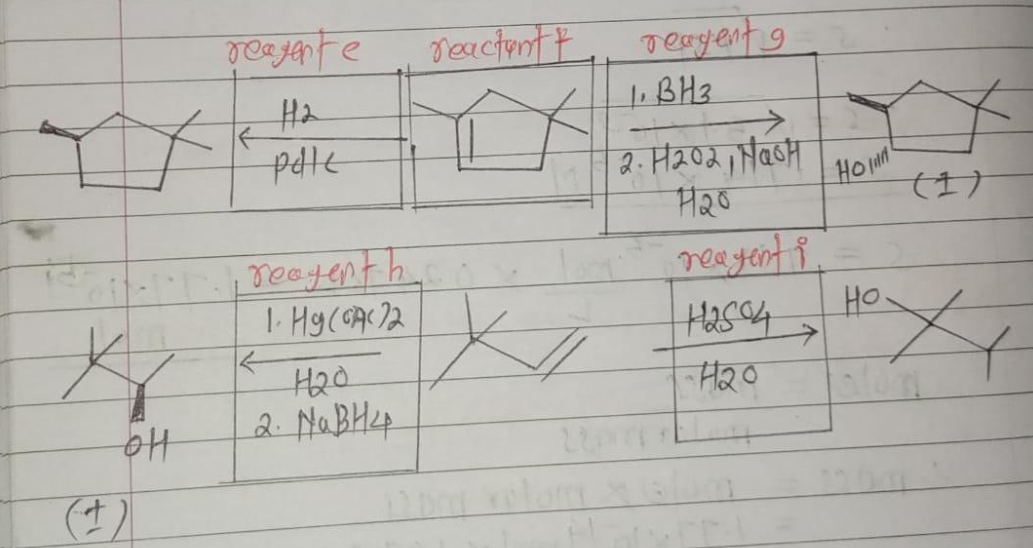 reagent e reactant f reagent g
H2
Pd/C
1. BH3
2. H2O2, NaOH
H2O
HO
(±)
reagent h
1. Hg(OAc)2
H2O
2. NaBH4
reagent i
H2SO4
H2O
HO
OH
(±)